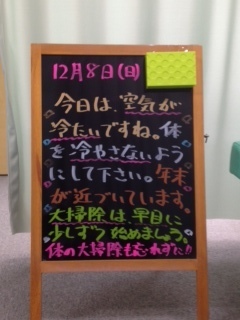 12月8日(日)
今日は、空気が
冷たいですね。体
を冷やさないよう
にして下さい。年末
が近づいています。
大掃除は、早目に
少しずつ始めましょう。
体の大掃除も忘れずに!!